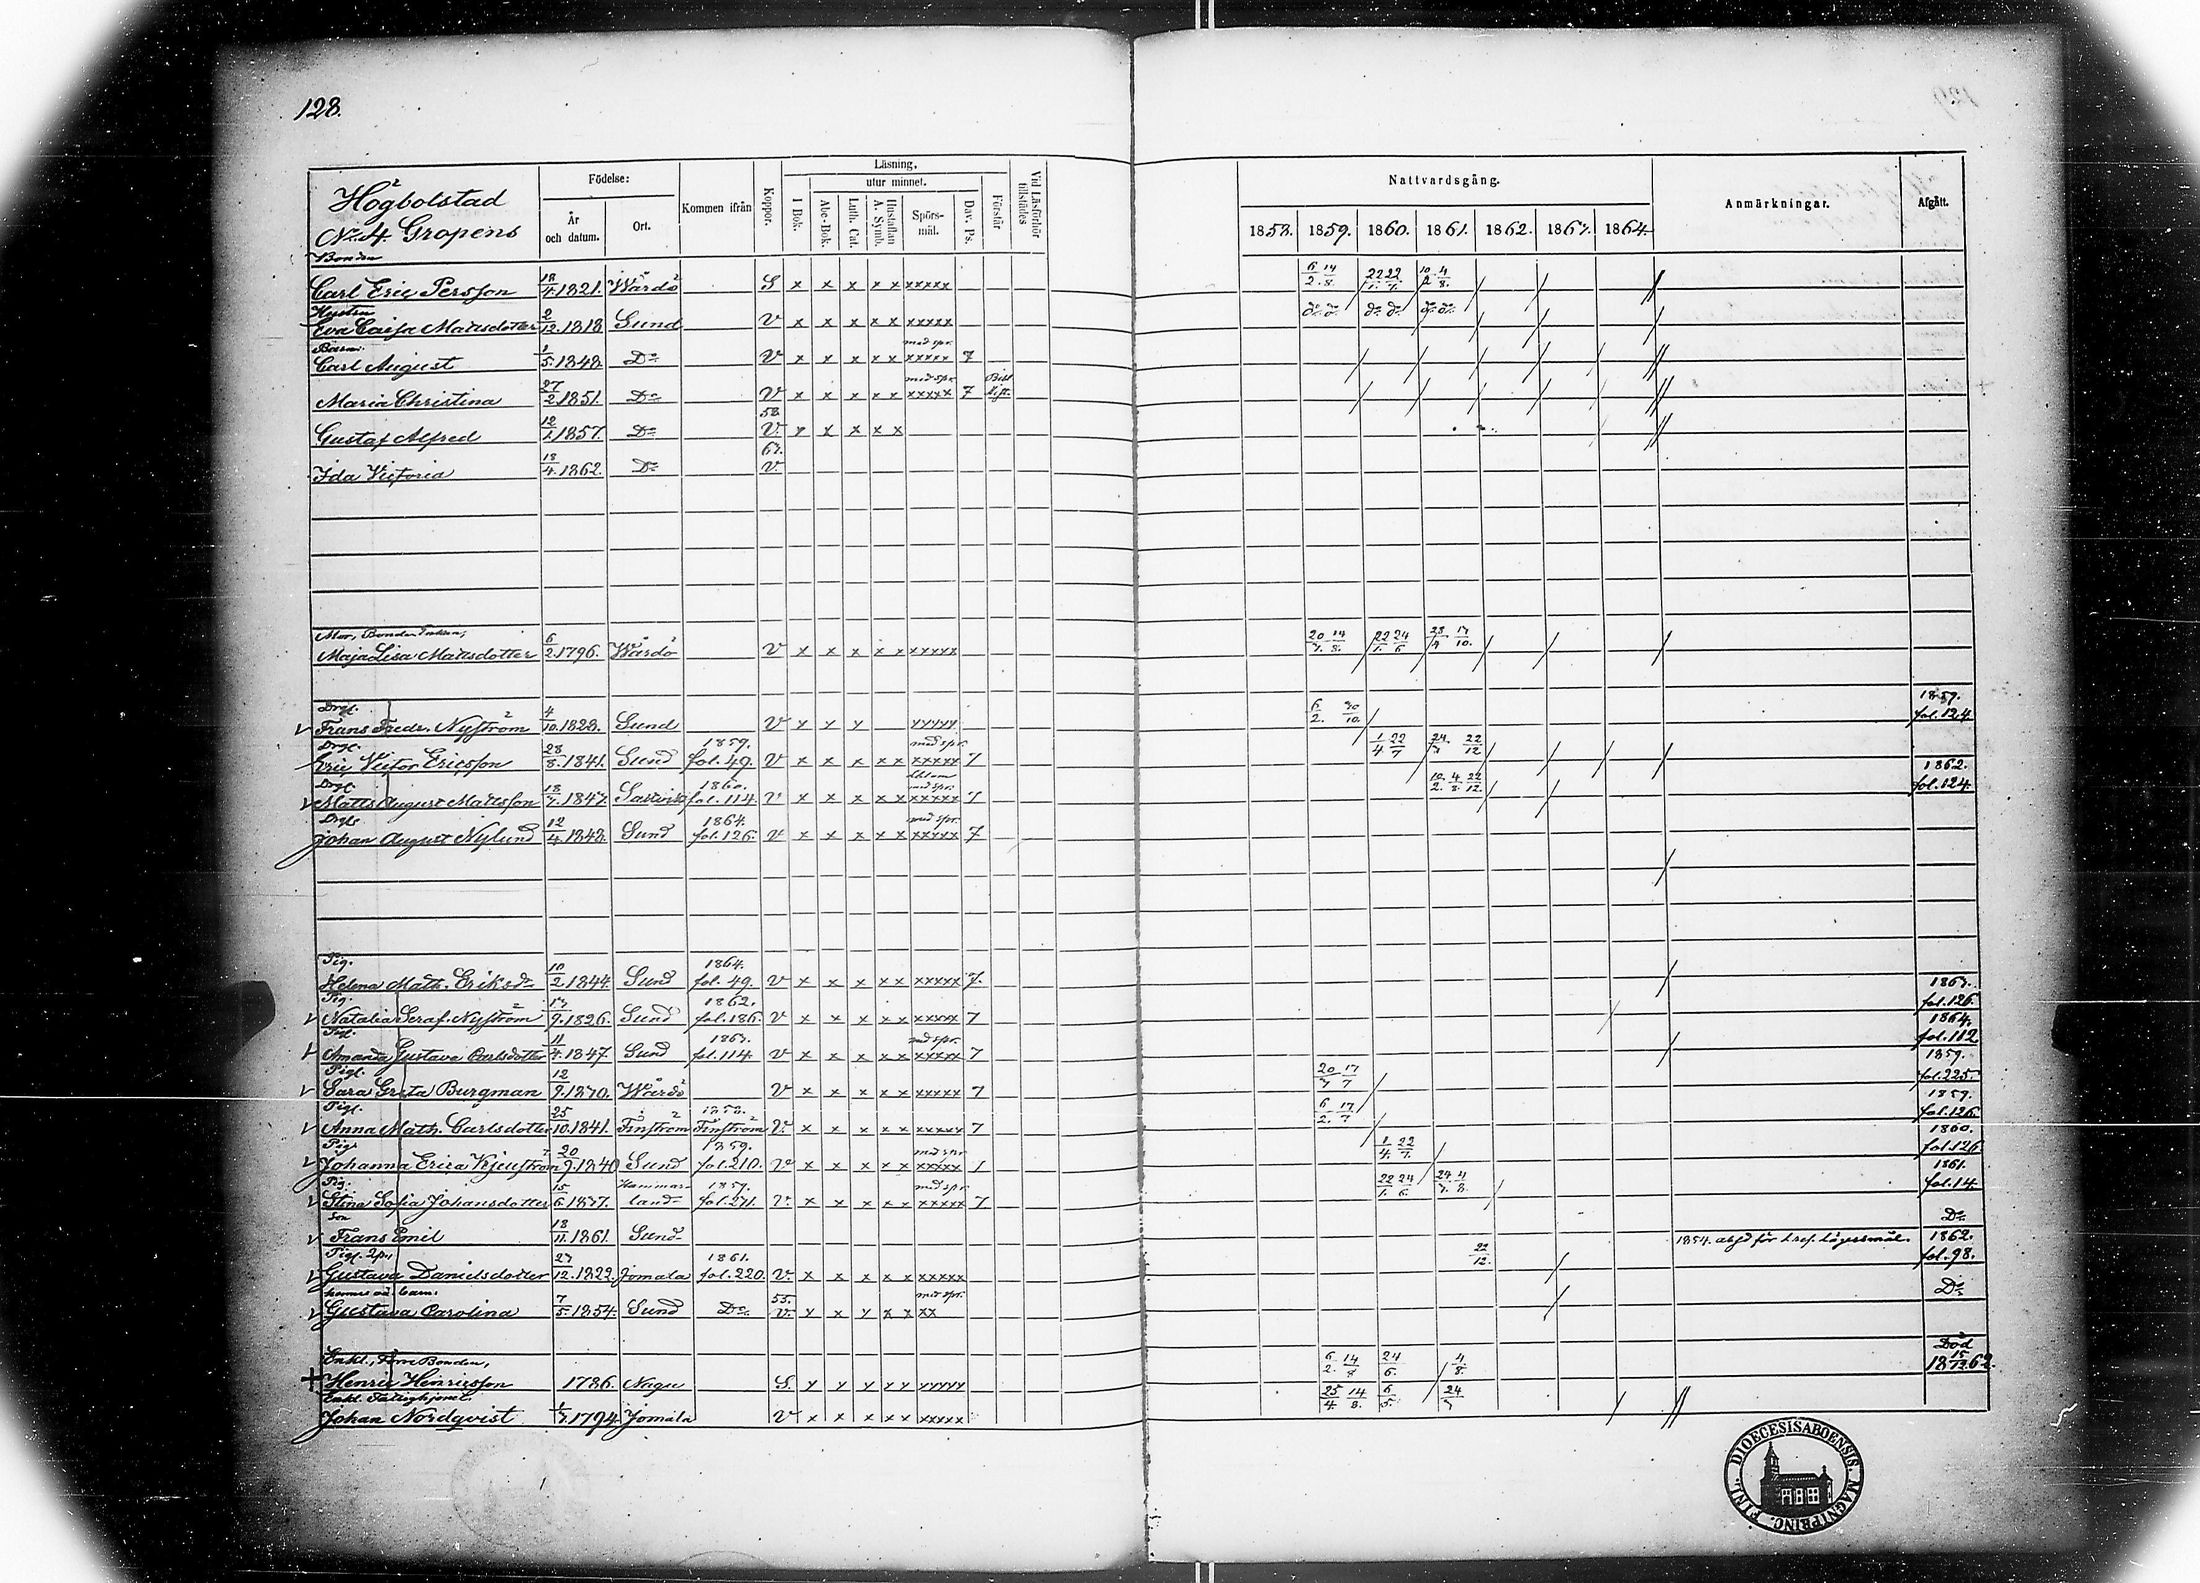 128.
Högbolstad
No 4 Gropens
Födelse:
År och datum.
Ort.
Kommen ifrån
Koppor.
Läsning.
I Bok.
utur minnet.
Abc-Bok.
Luth. Cat.
Hustaflan A. Symb.
Spörs- mål.
Dav. Ps.
Förstår
Vid Läsförhör tillstädes
Nattvardsgång.
1858. 1859. 1860. 1861. 1862. 1863. 1864.
Anmärkningar.
Afgått.
Bonden
Carl Eric Persson 18/4.1821. Wårdö S x x x x x xxxxx 6/2. 14/8. 22/1. 22/7. 10/2 4/8.
Hustru
Eva Caisa Mattsdotter 2/12.1818 Sund V x x x x x xxxxx do do do do do do
Barn:
Carl August 1/5.1848. Do V x x x x x med spr. xxxxx 7
Maria Christina 27/2.1851. Do V x x x x x med spr. xxxxx 7 Bibl. Hist.
Gustaf Alfred 12/1.1857. Do 58. V. x x x x x
Ida Victoria 18/4.1862. Do 63. V.
Mor, Bonde Enkan,
Maja Lisa Mattsdotter 6/2.1796. Wårdö V x x x x x xxxxx 20/3. 14/8. 22/1. 24/6 17/10.
Drgl.
Frans Fredr. Nyström 4/10.1828. Sund V x x x xxxxx 6/2. 30/10. 1859. fol. 124
Drgl.
Eric Victor Ericsson 28/8.1841. Sund 1859. fol. 49. V x x x x x med spr. xxxxx 7 1/4 22/7 22/12
Drgl.
Matts August Mattsson 18/7.1847. 1860. fol. 114. V x x x x x med spr. xxxxx 7 10/2. 4/8. 22/12. 1862. fol. 124.
Drgl.
Johan August Nylund 12/4.1848. Sund 1864. fol. 126. V x x x x x med spr. xxxxx 7
Pig.
Helena Math. Eriksdr 10/2.1844. Sund 1864. fol. 49. V x x x x x xxxxx 7.
Pig.
Natalia Seraf. Nyström 13/9.1826. Sund 1862. fol. 186. V x x x x x xxxxx 7 1863. fol. 126.
Pigl.
Amanda Gustava Carlsdotter 11/4.1847. Sund 1863. fol. 114. V x x x x x med spr. xxxxx 7 1864. fol. 112
Pigl.
Sara Greta Burgman 12/9. Wårdö V x x x x x xxxxx 7 20/3 17/7 1859. fol. 225.
Pigl.
Anna Math. Carlsdotter 25/10.1841. Finström 1858. Finström V. x x x x x xxxxx 7 6/2. 17/7 1859. fol. 126
Pigl
Johanna Erica 20/9.1840 Sund 1859. fol. 210. V x x x x x med spr. xxxxx 7 1/4. 22/7. 1860. fol. 126
Pig.
Stina Sofia Johansdotter 15/6.1837. Hammarland 1859. fol. 271. V. x x x x x med spr xxxxx 7. 22/1. 24/6. 24/3. 4/8. 1861. fol. 14.
Son
Frans Emil 18/11.1861. Sund Do
Pigl.
Gustava Danielsdotter 27/12.1822. Jomala 1861. fol. 220. V. x x x x x xxxxx 22/12. 1854. abs för 1 ref. Lägersmål. 1862. fol. 98.
hennes oä. barn:
Gustava Carolina 7/5.1854. Sund Do 55. V. x x x x x med spr. xx Do
Enkl., Förre Bonden,
Henric Henricsson 1786. Nagu S. x x x x x xxxxx 6/2. 14/8 24/6. 4/8. Död 15/12 1862.
Enkl. Fattighjonet
Johan Nordqvist 1/7.1794. Jomala V x x x x x xxxxx 25/4. 14/8. 6/5. 24/3
FINL. DIOECESIS ABOENSIS. MAGNI PRINC.